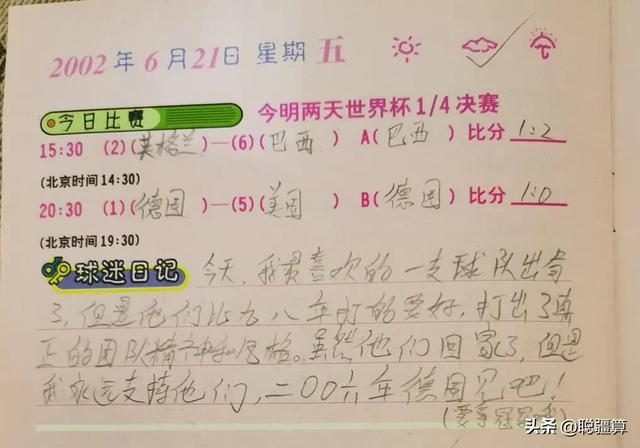 2002年6月21日 星期五
今日比赛 今明两天世界杯1/4决赛
15:30 (2)(英格兰)—(6)(巴西) A(巴西) 比分 1:2
(北京时间14:30)
20:30 (1)(德国)—(5)(美国) B(德国) 比分 1:0
(北京时间19:30)
球迷日记 今天,我最喜欢的一支球队出局
了,但是他们比九八年打的要好,打出了真
正的团队精神和风格。虽然他们回家了,但是
我永远支持他们,二00六年德国见吧!
(要拿冠军
头条 @聪疆算